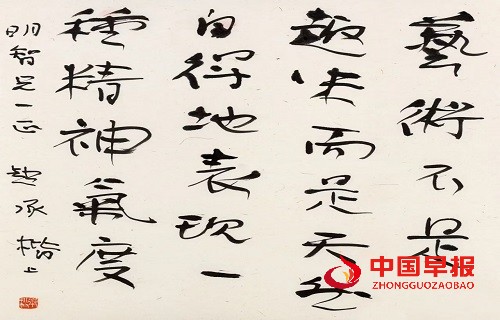 藝術不是
趣味而是天
自得地表现一
種精神氣度
明智兄一正 趙承楷上
中国早报
ZHONGGUOZAOBAO